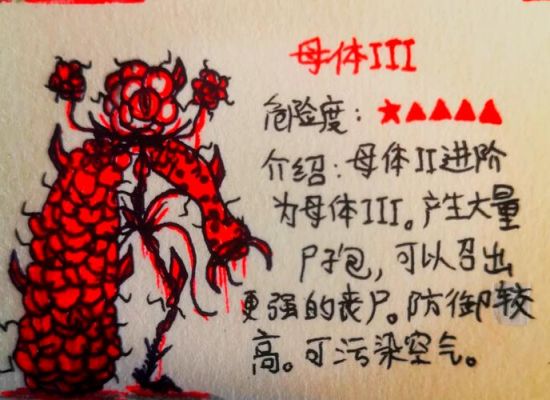 母体III
危险度：★▲▲▲▲
介绍：母体II进阶
为母体III。产生大量
尸孢，可以召出
更强的丧尸。防御较
高。可污染空气。